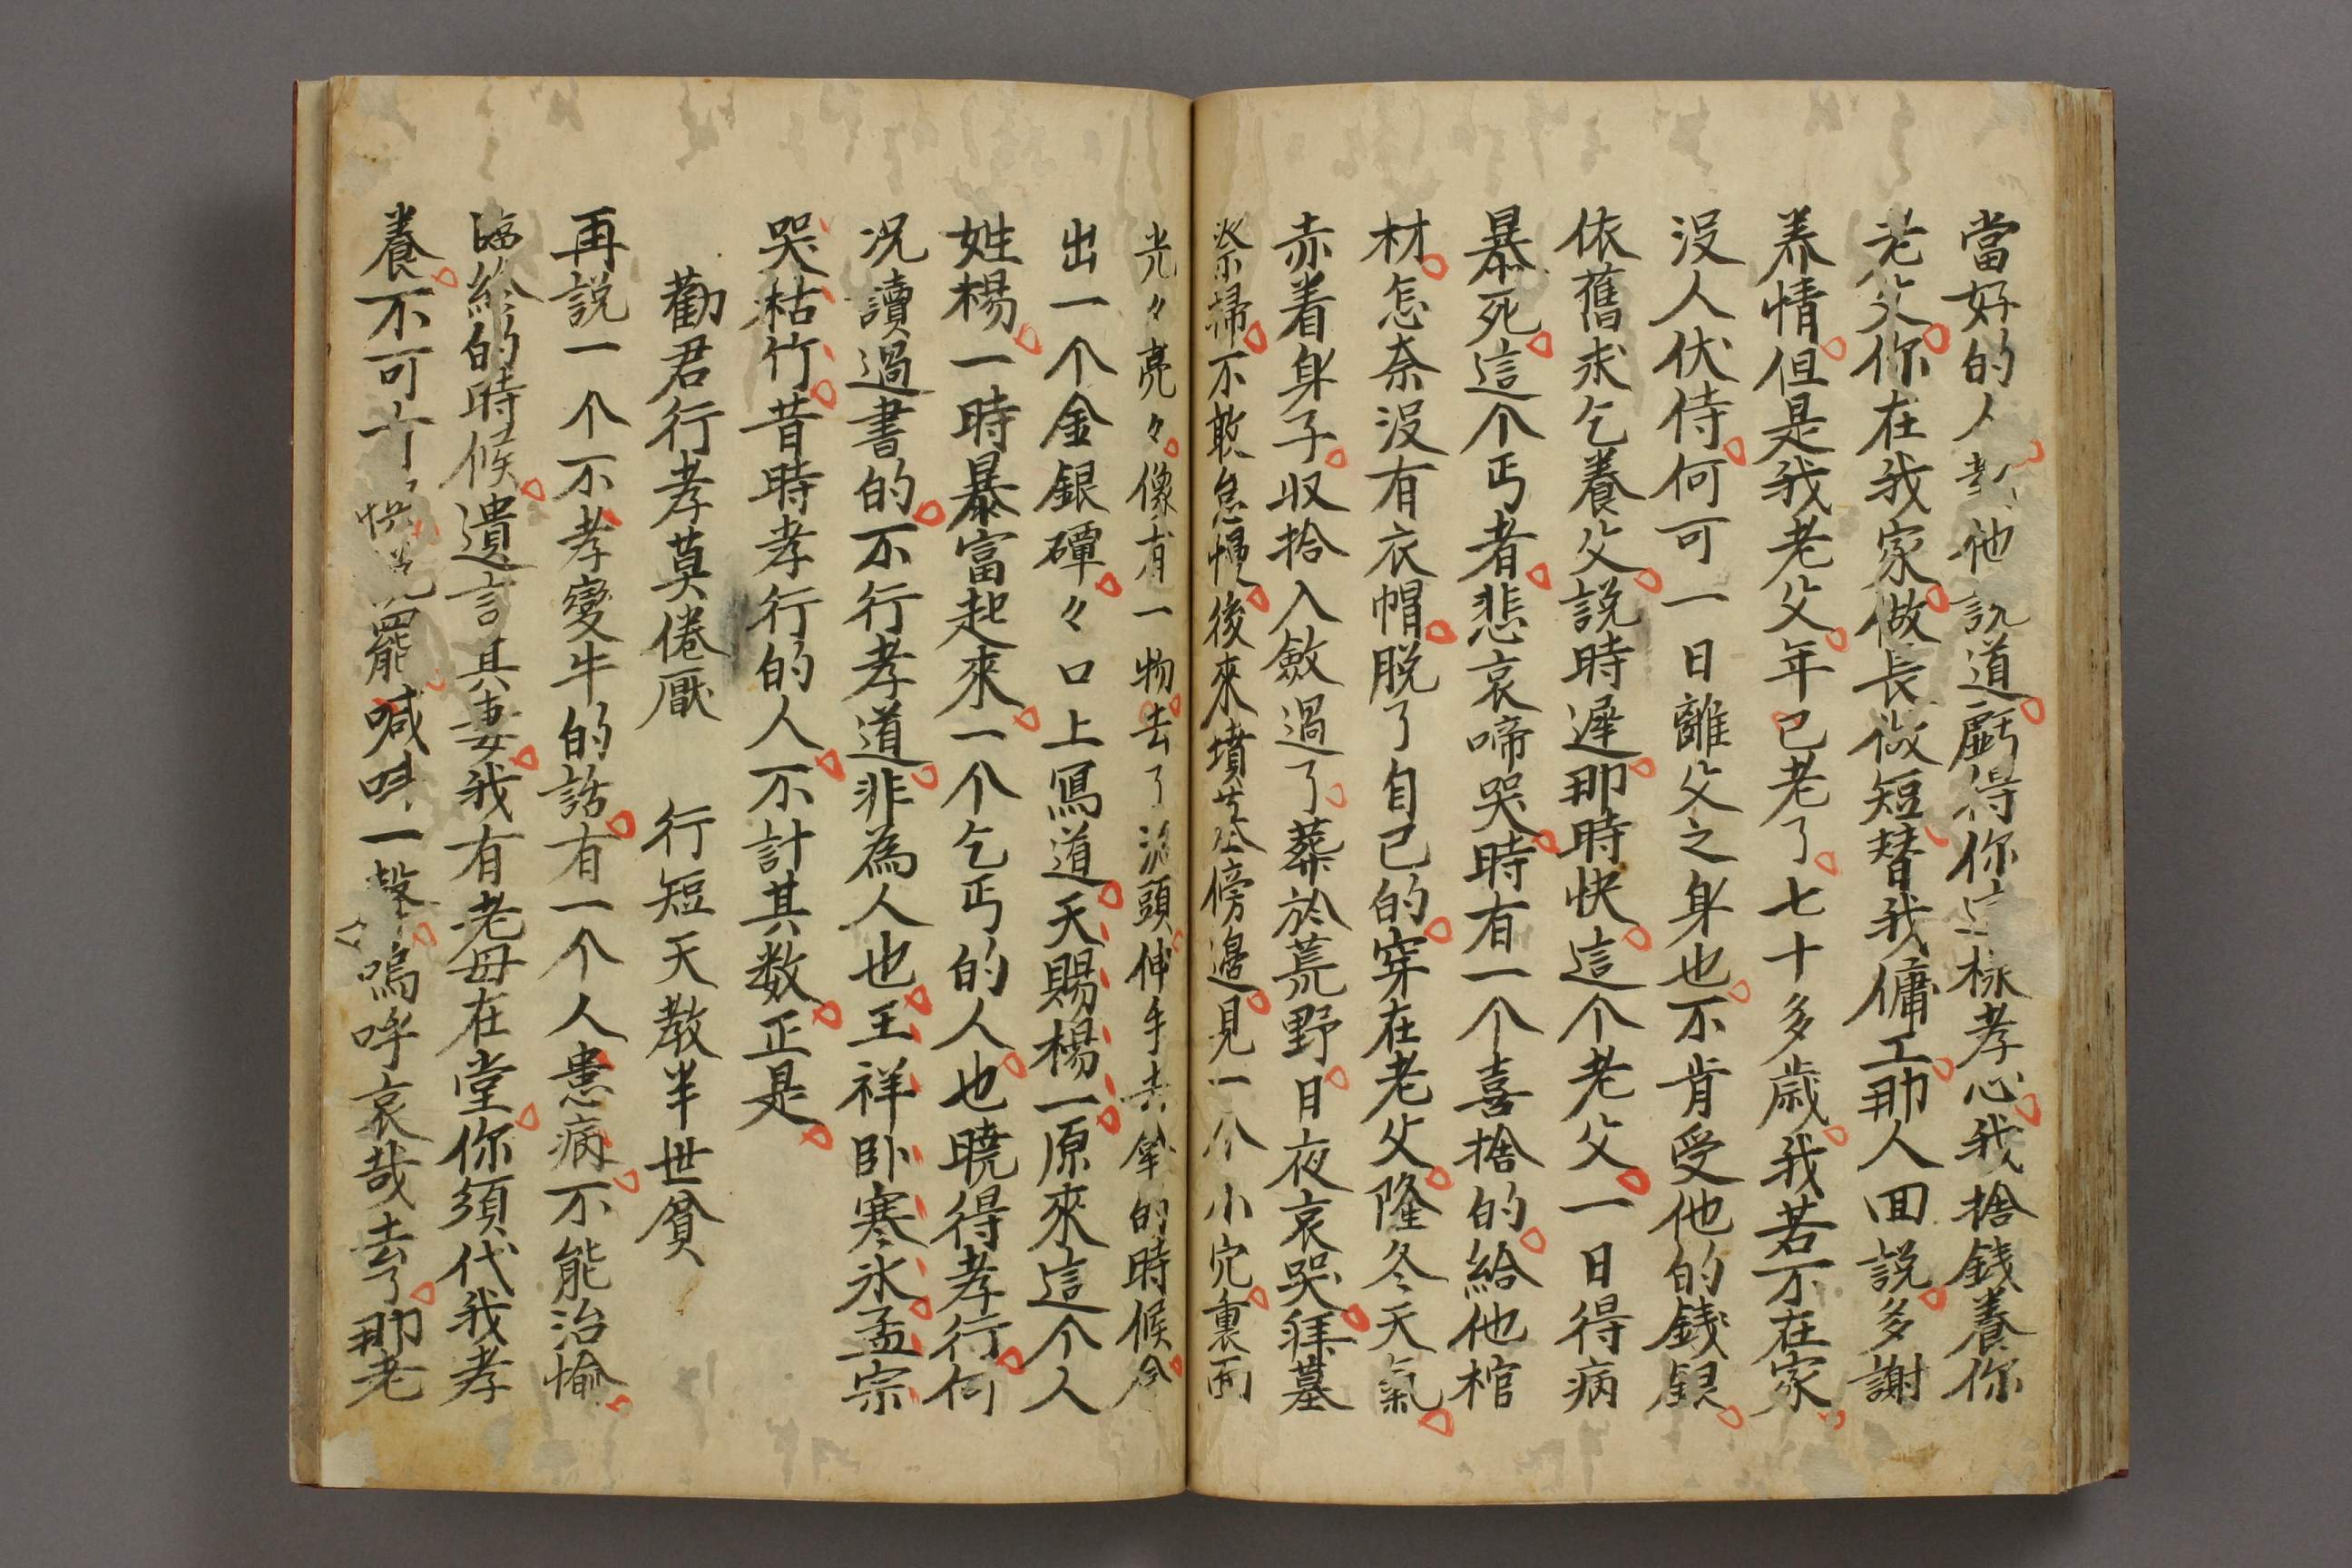 當好的人對他說道虧得你這樣孝心我捨錢養你
老父你在我家做長做短替我傭工那人回說多謝
养情但是我老父年已老了七十多歲我若不在家
沒人伏侍何可一日離父之身也不肯受他的錢銀
依舊求乞養父說時遲那時快這个老父一日得病
暴死這个丐者悲哀啼哭時有一个喜捨的給他棺
材怎奈沒有衣帽脫了自己的穿在老父隆冬天氣
赤着身子收拾入斂過了葬於荒野日夜哀哭拜墓
祭掃不敢怠慢後來墳墓傍邊見一个小穴裏面
光々亮々像有一物去了泥頭伸手去拿的時候今
出一个金銀磹々口上寫道天賜楊一原來這个人
姓楊一時暴富起來一个乞丐的人也曉得孝行何
况讀過書的不行孝道非為人也王祥卧寒氷孟宗
哭枯竹昔時孝行的人不計其数正是
勸君行孝莫倦厭 行短天教半世貧
再說一个不孝變牛的話有一个人患病不能治愉
臨終的時候遺言其妻我有老母在堂你須代我孝
養不可 罷喊叫一聲嗚呼哀哉去了那老